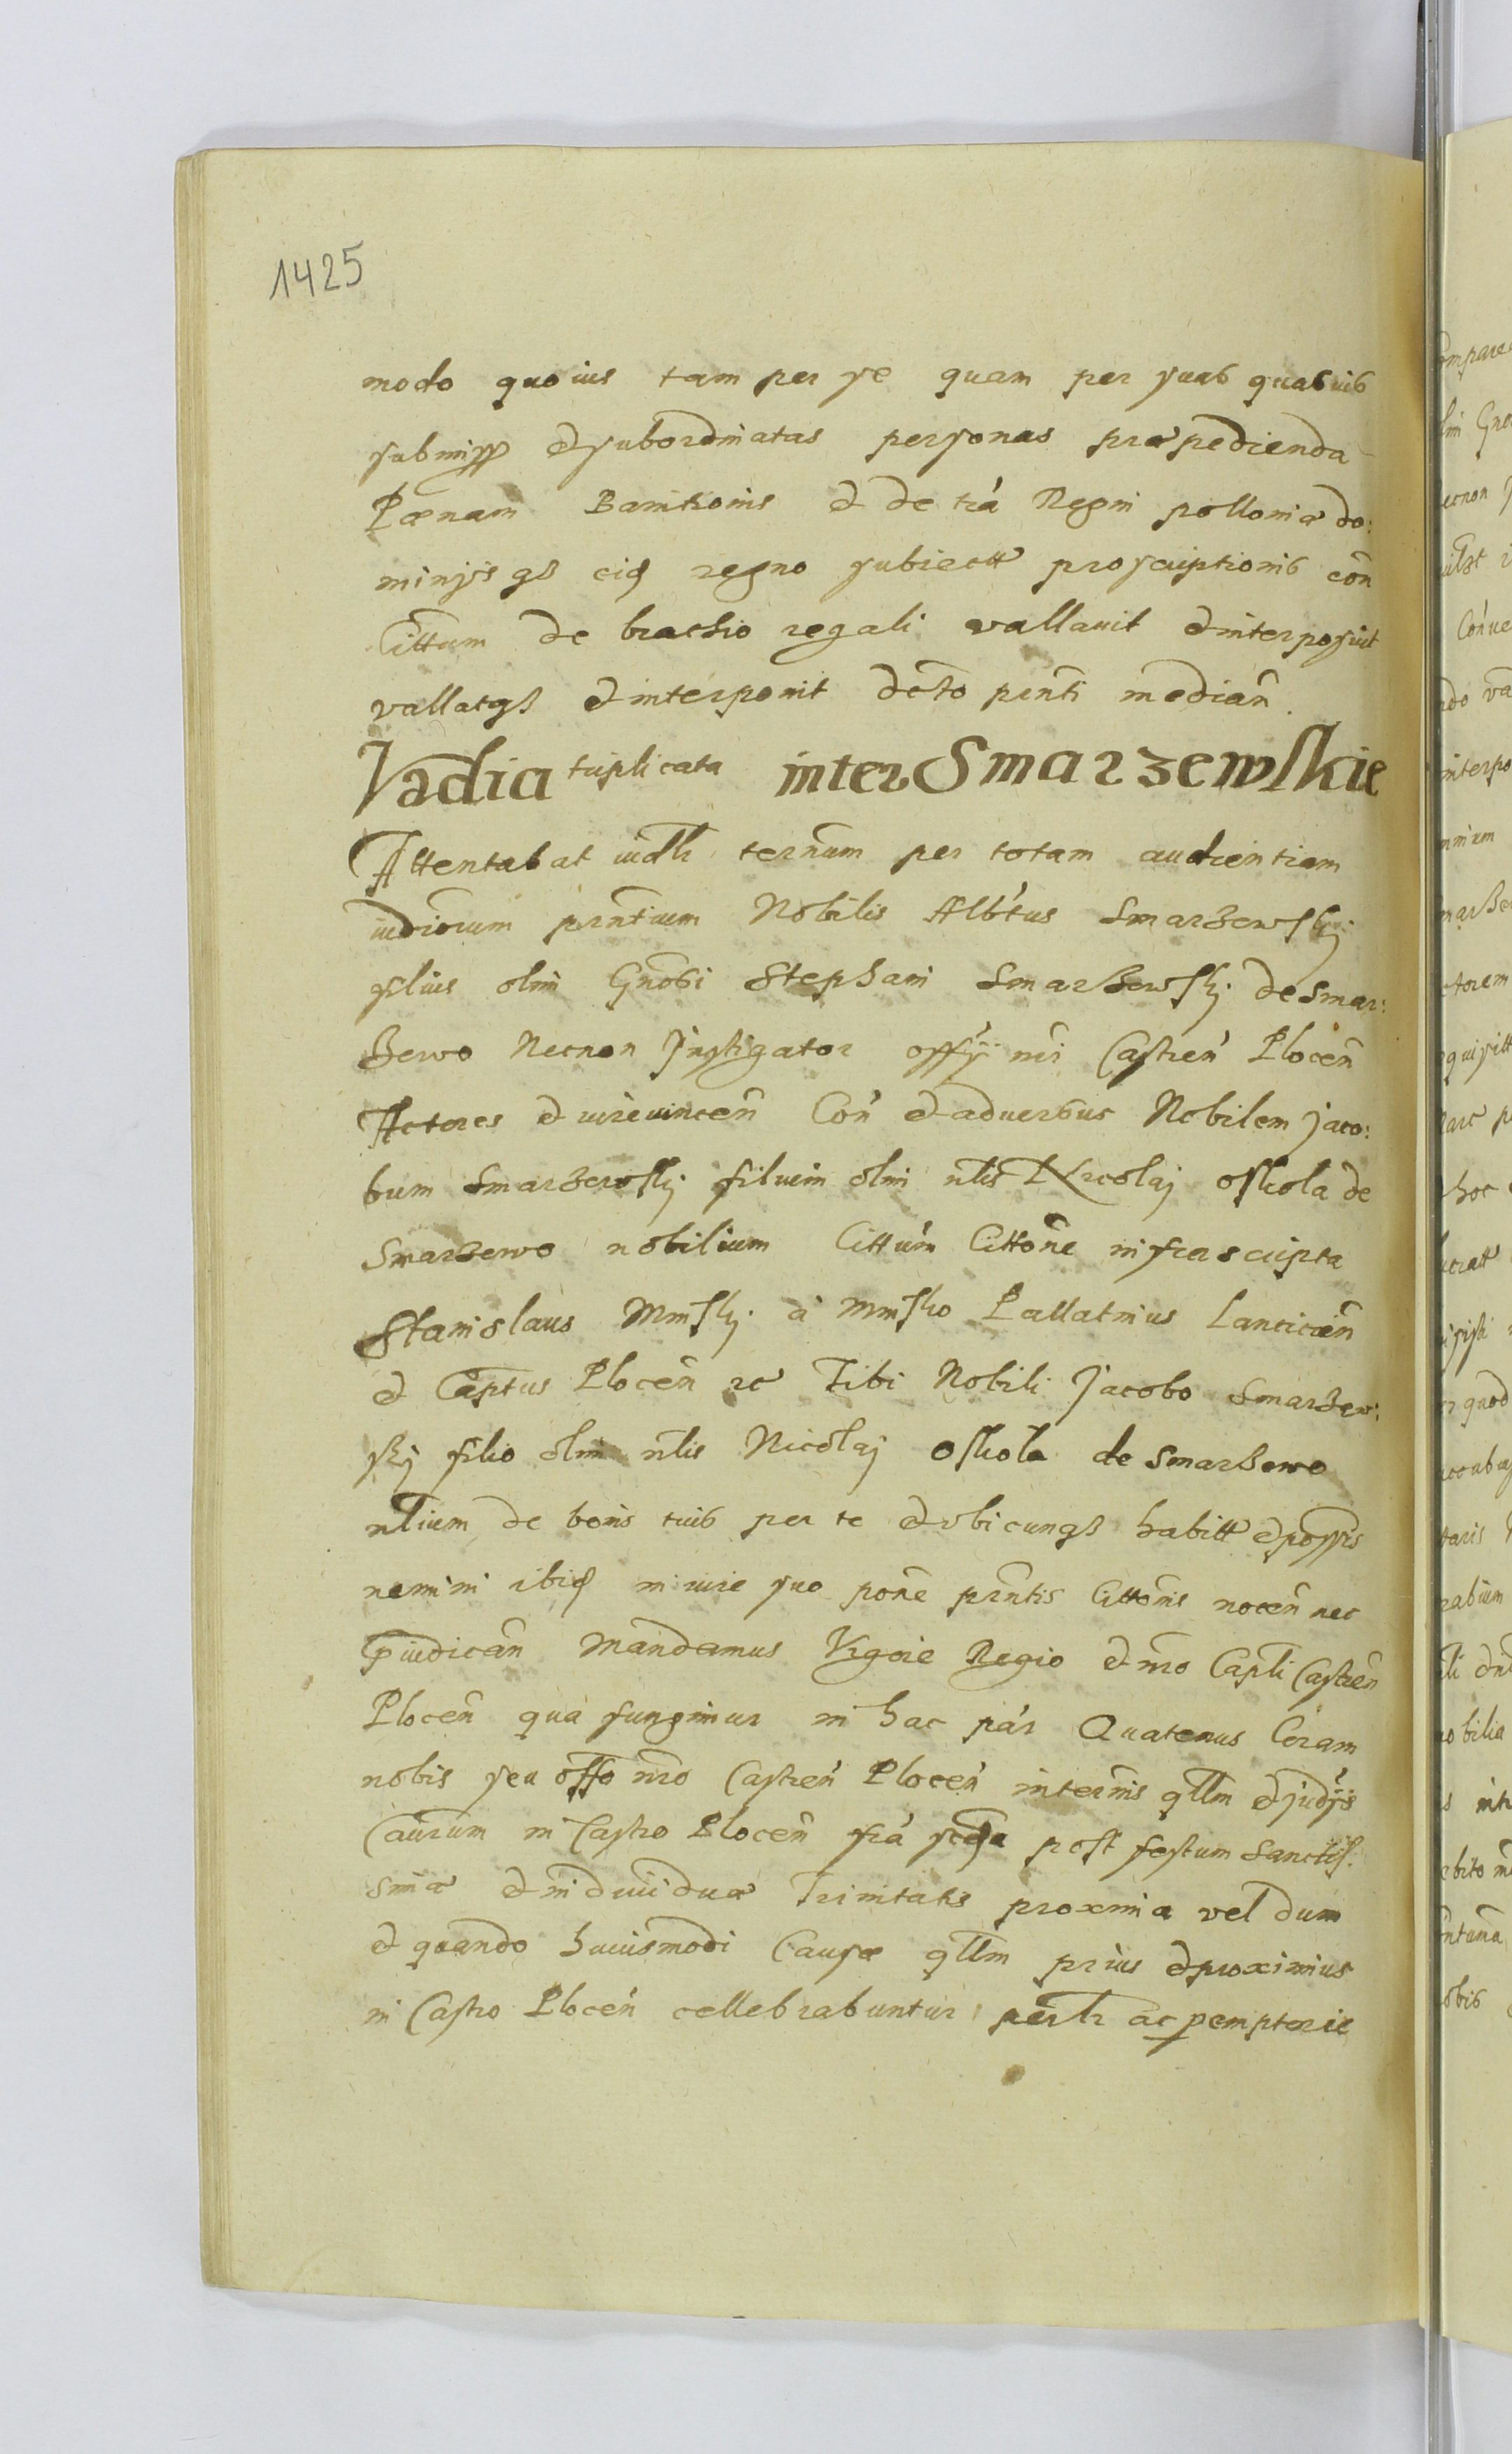 1425
modo quo ius tam per se quam per suas quasuis
submiss et subordinatas personas præpedienda
Pænam Banitionis et de trá Regni polloniæ do:
minijs qȝ eiꝗ regno subiectt proscriptionis con̄
Cittum de brachio regali vallauit et interposuit
vallatqȝ et interponit dcto pnti median̄
Vadia triplicata inter Smarzewskie
Attentabat iudlr ternum per totam audientiam
iudiciorum prntium Nobilis Albtus Smarzewskj
filius olim Gnosi Stephani Smarzewskj de Smar:
zewo Necnon Instigator offÿ nri Castren Plocen
Actores et iure vincen Con et aduersus Nobilem Jaco:
bum Smarzewskj filium olim nlis Nicolaj Oskola de
Smarzewo nobilium Cittum Cittone infrascripta
Stanislaus Minskj à Minsko Pallatinus Lancicien
et Captus Plocen rc Tibi Nobili Jacobo Smarzew:
skj filio olim nlis Nicolaj Oskola de Smarzewo
nlium de bonis tuis per te et vbicunqȝ habitt et possis
nemini ibiꝗ in iure suo pone prntis Cittonis nocen nec
piudican Mandamus Vigore Regio et nro Capli Castren
Plocen qua fungimur in hac par Quatenus Coram
nobis seu offo nro Castren Plocen in termis qllm et judÿs
Caurum in Castro Plocen fra scda post festum Sanctis:
simæ et indiuiduæ Trinitatis proxima vel dum
et quando huiusmodi Causæ qllm prius et proximius
in Castro Plocen cellebrabuntur perlr ac pemptorie